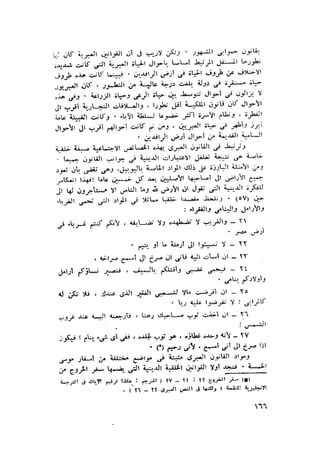 بقانون حمورابى المشهور · ولكن لاريب فى أن القوانين العبرية كان لها
تطورها المستقل المرتبط أساسا بأحوال الحياة العبرية التى كانت شديدة
الاختلاف عن ظروف الحياة فى أرض الرافدين · فبينما كانت هذه ظروف
حياة مستقرة فى دولة بلغت درجة عاليـة من التطـور ، كان العبريون
لا يزالون فى أحوال تتوسط بين حياة الرعى وحياة الزراعة · وفى هذه
الأحوال كان قانون الملكيـة أقل تطورا ، والعـلاقات التجـارية أقرب الى
الفطرة ، ونظام الأسرة أكثر خضوعا لسلطة الآباء · وكانت القبيلة عاملا
أبرز وأظهر فى حياة العبريين ، ومن ثم كانت أحوالهم أقرب الى الأحوال
السامية القديمة من أحوال أرض الرافدين ·
وترتبط فى القانون العبرى بهذه الخصائص الاجتماعية صبغة خلقية
خاصة هى نتيجة تغلغل الاعتبارات الدينية فى جوانب القانون جميعا ·
ومن الأمثلة البارزة على ذلك المواد الخاصة باليوبيل، وهى تقضى بأن تعود
جميع الأراضى الى أصحابها الأصليين بعد كل خمسين عاما
للفكرة الدينية التى تقول ان الأرض لله وما الناس الا مستأجرون لها الى
حين (٥٧) · ونلحظ مقصدا خلقيا مماثلا فى المواد التى تحمى الغرباء
والأرامل واليتامى والفقراء :
٢١ – والغريب لا تضطهده ولا تضـايقه ، لأنكم كنتم غـرباء فى
أرض مصر ·
٢٢ – لا تسيئوا الى أرملة ما أو يتيم ·
٢٣ – ان أسأت اليه فانى ان صرخ الى أسمع صراخه ·
٢٤ – فيحمى غضبى وأقتلكم بالسيف ، فتصير نساؤكم أرامل
وأولادكم يتامى ·
٢٥ – ان أقرضت مالا لشـعبى الفقير الذى عندك ، فلا تكن له
كالمرابى : لا تفرضوا عليه ربا ·
٢٦ – ان أخذت ثوب صـاحبك رهنا ، فارجعه اليـه عند غروب
الشمس :
٢٧ – لأنه وحده غطاؤه ، هو ثوب لجلده ، ففى أى شىء ينام ؟ فيكون
اذا صرخ الى أنى أسمع ، لأنى رحيم (*) ·
ومواد القانون العبرى مثبتة فى مواضع مختلفة من أسفار موسى
الخمسة · فنجد أولا القوانين الخلقية الدينية التى يضمها سفر الخروج من
(*) سفر الخروج ٢٢ : ٢١ – ٢٧ ( المترجم : هكذا ترقيم الآيات فى الترجمة
الانجليزية المنقحة ، ولكنها فى النص العبرى ٢٢ – ٢٦ ) ·
١٦٦